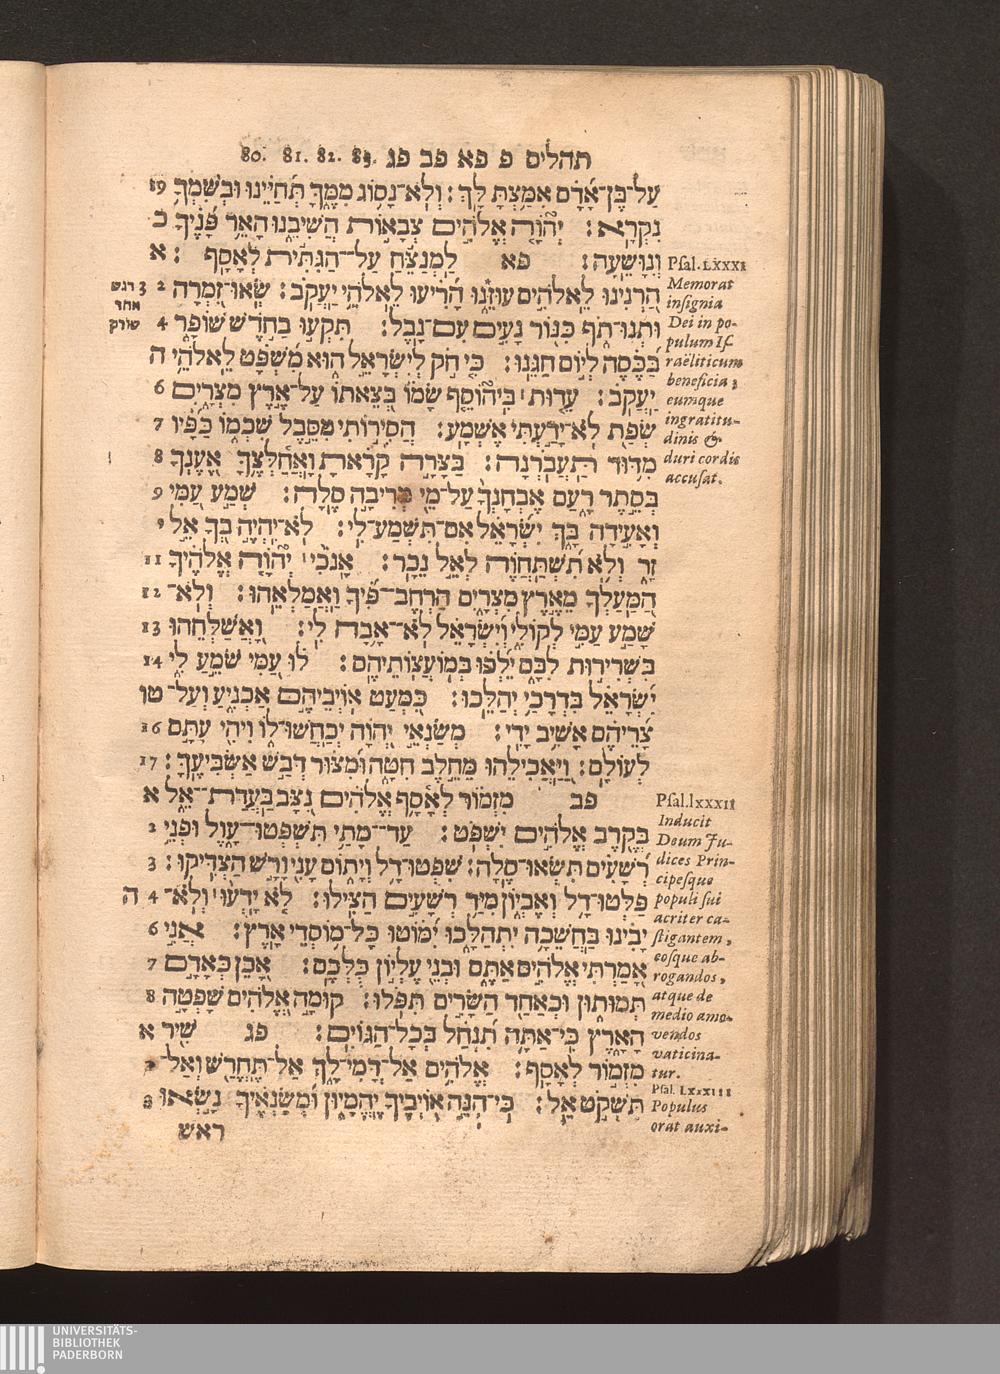 תהלים פ פא פב פג 80. 81. 82. 83.
עַל־בֶּן־אָ֝דָ֗ם אִמַּ֥צְתָּ לָּֽךְ׃ וְלֹא־נָס֥וֹג מִמֶּ֑ךָּ תְּ֝חַיֵּ֗ינוּ וּבְשִׁמְךָ֥ 19
נִקְרָֽא׃ יְה֘וָ֤ה אֱלֹהִ֣ים צְבָא֣וֹת הֲשִׁיבֵ֑נוּ הָאֵ֥ר פָּ֝נֶ֗יךָ כ
וְנִוָּשֵֽׁעָה׃ פא לַמְנַצֵּ֬חַ עַֽל־הַגִּתִּ֬ית לְאָסָֽף׃ א
הַ֭רְנִינוּ לֵאלֹהִ֣ים עוּזֵּ֑נוּ הָ֝רִ֗יעוּ לֵאלֹהֵ֥י יַעֲקֹֽב׃ שְֽׂאוּ־זִ֭מְרָה 2 3
וּתְנוּ־תֹ֑ף כִּנּ֖וֹר נָעִ֣ים עִם־נָֽבֶל׃ תִּקְע֣וּ בַחֹ֣דֶשׁ שׁוֹפָ֑ר 4
בַּ֝כֵּ֗סֶה לְי֣וֹם חַגֵּֽנוּ׃ כִּ֤י חֹ֣ק לְיִשְׂרָאֵ֣ל ה֑וּא מִ֝שְׁפָּ֗ט לֵאלֹהֵ֥י ה
יַעֲקֹֽב׃ עֵ֤דוּת׀ בִּֽיה֘וֹסֵ֤ף שָׂמ֗וֹ בְּ֭צֵאתוֹ עַל־אֶ֣רֶץ מִצְרָ֑יִם 6
שְׂפַ֖ת לֹא־יָדַ֣עְתִּי אֶשְׁמָֽע׃ הֲסִיר֣וֹתִי מִסֵּ֣בֶל שִׁכְמ֑וֹ כַּ֝פָּ֗יו 7
מִדּ֥וּד תַּעֲבֹֽרְנָה׃ בַּצָּרָ֥ה קָרָ֗אתָ וָאֲחַ֫לְּצֶ֥ךָּ אֶ֭עֶנְךָ 8
בְּסֵ֣תֶר רַ֑עַם אֶבְחָֽנְךָ֨ עַל־מֵ֖י מְרִיבָ֣ה סֶֽלָה׃ שְׁמַ֣ע עַ֭מִּי 9
וְאָעִ֣ידָה בָּ֑ךְ יִ֝שְׂרָאֵ֗ל אִם־תִּֽשְׁמַֽע־לִֽי׃ לֹֽא־יִהְיֶ֣ה בְ֭ךָ אֵ֣ל י
זָ֑ר וְלֹ֥א תִ֝שְׁתַּחֲוֶ֗ה לְאֵ֣ל נֵכָֽר׃ אָֽנֹכִ֨י׀ יְה֘וָ֤ה אֱלֹהֶ֗יךָ 11
הַֽ֭מַּעַלְךָ מֵאֶ֣רֶץ מִצְרָ֑יִם הַרְחֶב־פִּ֝֗יךָ וַאֲמַלְאֵֽהוּ׃ וְלֹא־ 12
שָׁמַ֣ע עַמִּ֣י לְקוֹלִ֑י וְ֝יִשְׂרָאֵ֗ל לֹא־אָ֥בָה לִֽי׃ וָֽ֭אֲשַׁלְּחֵהוּ 13
בִּשְׁרִיר֣וּת לִבָּ֑ם יֵ֝לְכ֗וּ בְּֽמוֹעֲצֽוֹתֵיהֶֽם׃ ל֗וּ עַ֭מִּי שֹׁמֵ֣עַֽ לִ֑י 14
יִ֝שְׂרָאֵ֗ל בִּדְרָכַ֥י יְהַלֵּֽכוּ׃ כִּ֭מְעַט אוֹיְבֵיהֶ֣ם אַכְנִ֑יעַ וְעַל־ טו
צָ֝רֵיהֶ֗ם אָשִׁ֥יב יָדִֽי׃ מְשַׂנְאֵ֣י יְ֭הוָה יְכַחֲשׁוּ־ל֑וֹ וִיהִ֖י עִתָּ֣ם 16
לְעוֹלָֽם׃ וַֽ֭יַּאֲכִילֵהוּ מֵחֵ֣לֶב חִטָּ֑ה וּ֝מִצּ֗וּר דְּבַ֣שׁ אַשְׂבִּיעֶֽךָ׃ 17
פב מִזְמ֗וֹר לְאָ֫סָ֥ף אֱֽלֹהִ֗ים נִצָּ֥ב בַּעֲדַת־אֵ֑ל א
בְּקֶ֖רֶב אֱלֹהִ֣ים יִשְׁפֹּֽט׃ עַד־מָתַ֥י תִּשְׁפְּטוּ־עָ֑וֶל וּפְנֵ֥י 2
רְ֝שָׁעִ֗ים תִּשְׂאוּ־סֶֽלָה׃ שִׁפְטוּ־דַ֥ל וְיָת֑וֹם עָנִ֖י וָרָ֣שׁ הַצְדִּֽיקוּ׃ 3
פַּלְּטוּ־דַ֥ל וְאֶבְי֑וֹן מִיַּ֖ד רְשָׁעִ֣ים הַצִּֽילוּ׃ לֹ֤א יָֽדְע֨וּ׀ וְלֹ֥א־ 4 ה
יָבִ֗ינוּ בַּחֲשֵׁכָ֥ה יִתְהַלָּ֑כוּ יִ֝מּ֗וֹטוּ כָּל־מ֥וֹסְדֵי אָֽרֶץ׃ אֲנִ֣י 6
אָ֭מַרְתִּי אֱלֹהִ֣ים אַתֶּ֑ם וּבְנֵ֖י עֶלְי֣וֹן כֻּלְּכֶֽם׃ אָ֭כֵן כְּאָדָ֣ם 7
תְּמוּת֑וּן וּכְאַחַ֖ד הַשָּׂרִ֣ים תִּפֹּֽלוּ׃ קוּמָ֣ה אֱ֭לֹהִים שָׁפְטָ֣ה 8
הָאָ֑רֶץ כִּֽי־אַתָּ֥ה תִ֝נְחַ֗ל בְּכָל־הַגּוֹיִֽם׃ פג שִׁ֖יר א
מִזְמ֣וֹר לְאָסָֽף׃ אֱלֹהִ֥ים אַל־דֳּמִי־לָ֑ךְ אַל־תֶּחֱרַ֖שׁ וְאַל־ 2
תִּשְׁקֹ֣ט אֵֽל׃ כִּֽי־הִנֵּ֣ה א֭וֹיְבֶיךָ יֶהֱמָי֑וּן וּ֝מְשַׂנְאֶ֗יךָ נָ֣שְׂאוּ 3
ראש
דגש
אחר
שורק
Psal.LXXXI
Memorat
insignia
Dei in po-
pulum Is-
raëliticum
beneficia;
eumque
ingratitu-
dinis &
duri cordis
accusat.
Psal.lxxxII
Inducit
Deum Ju-
dices Prin-
cipesque
populi sui
acriter ca-
stigantem,
eosque ab-
rogandos,
atque de
medio amo-
vendos
vaticina-
tur.
Psal. LXXXIII
Populus
orat auxi-
UNIVERSITÄTS-
BIBLIOTHEK
PADERBORN